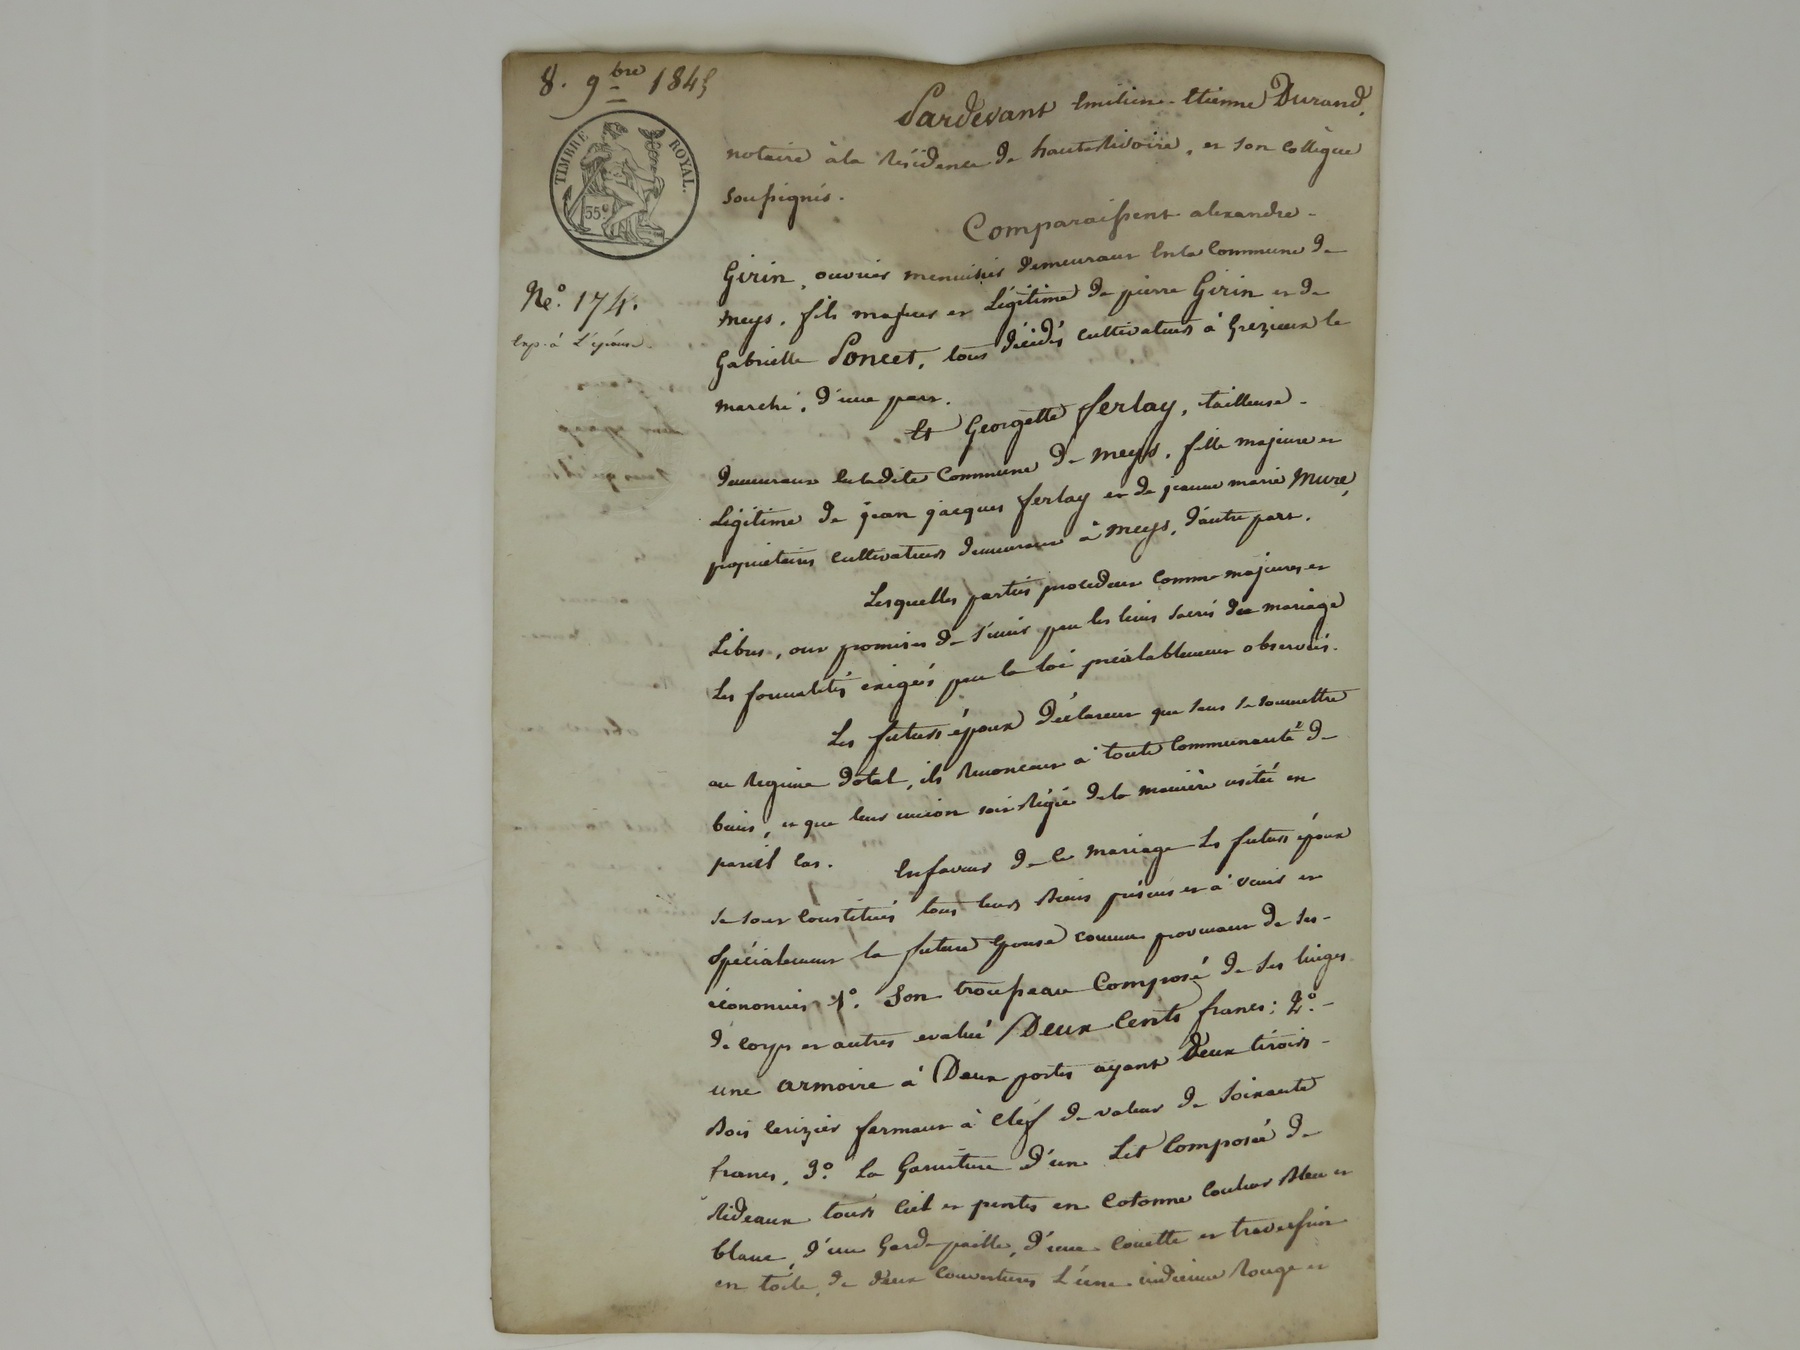 8. 9bre 1845
TIMBRE ROYAL.
35c
No. 174.
Exp. à L'épouse.
Pardevant Emilien-Etienne Durand,
notaire à la Résidence de hauteRivoire, et son Collègue
soussignés.
Comparaissent alexandre-
Girin, ouvrier menuisier demeurant En la Commune de
meys, fils majeur et Légitime de pierre Girin et de
Gabrielle Poncet, tous décédés cultivateurs à Grezieux le
marché, d'une part.
Et Georgette ferlay, tailleuse-
demeurant En ladite Commune de meys, fille majeure et
Légitime de jean jacques ferlay et de jeanne marie Mure,
propriétaires cultivateurs demeurant à meys, d'autre part.
Lesquelles parties procédant comme majeures et
Libres, ont promis de s'unir par les liens sacrés du mariage
Les formalités exigées par la loi préalablement observées.
Les futurs époux déclarent que sans se soumettre
au Régime dotal, ils Renoncent à toute Communauté de
biens, et que leur union soit Régie de la manière usitée en
pareil Cas.
En faveur de Ce mariage Les futurs époux
se sont Constitués tous leurs Biens présents et à venir et
Spécialement la future Epouse comme provenant de ses-
économies 1o. Son trousseau Composé de ses linges
de corps et autres evalué Deux Cents francs; 2o.-
une armoire à Deux portes ayant Deux tiroirs-
Bois Cerizier fermant à Cléf de valeur de Soixante
francs, 3o. La Garniture d'un Lit Composée de
Rideaux tours Ciel et pentes en Cotonne Couleur Bleu et
blanc, d'un Garde paille, d'une Couette et traversin
en toile, de deux Couvertures L'une indienne Rouge et